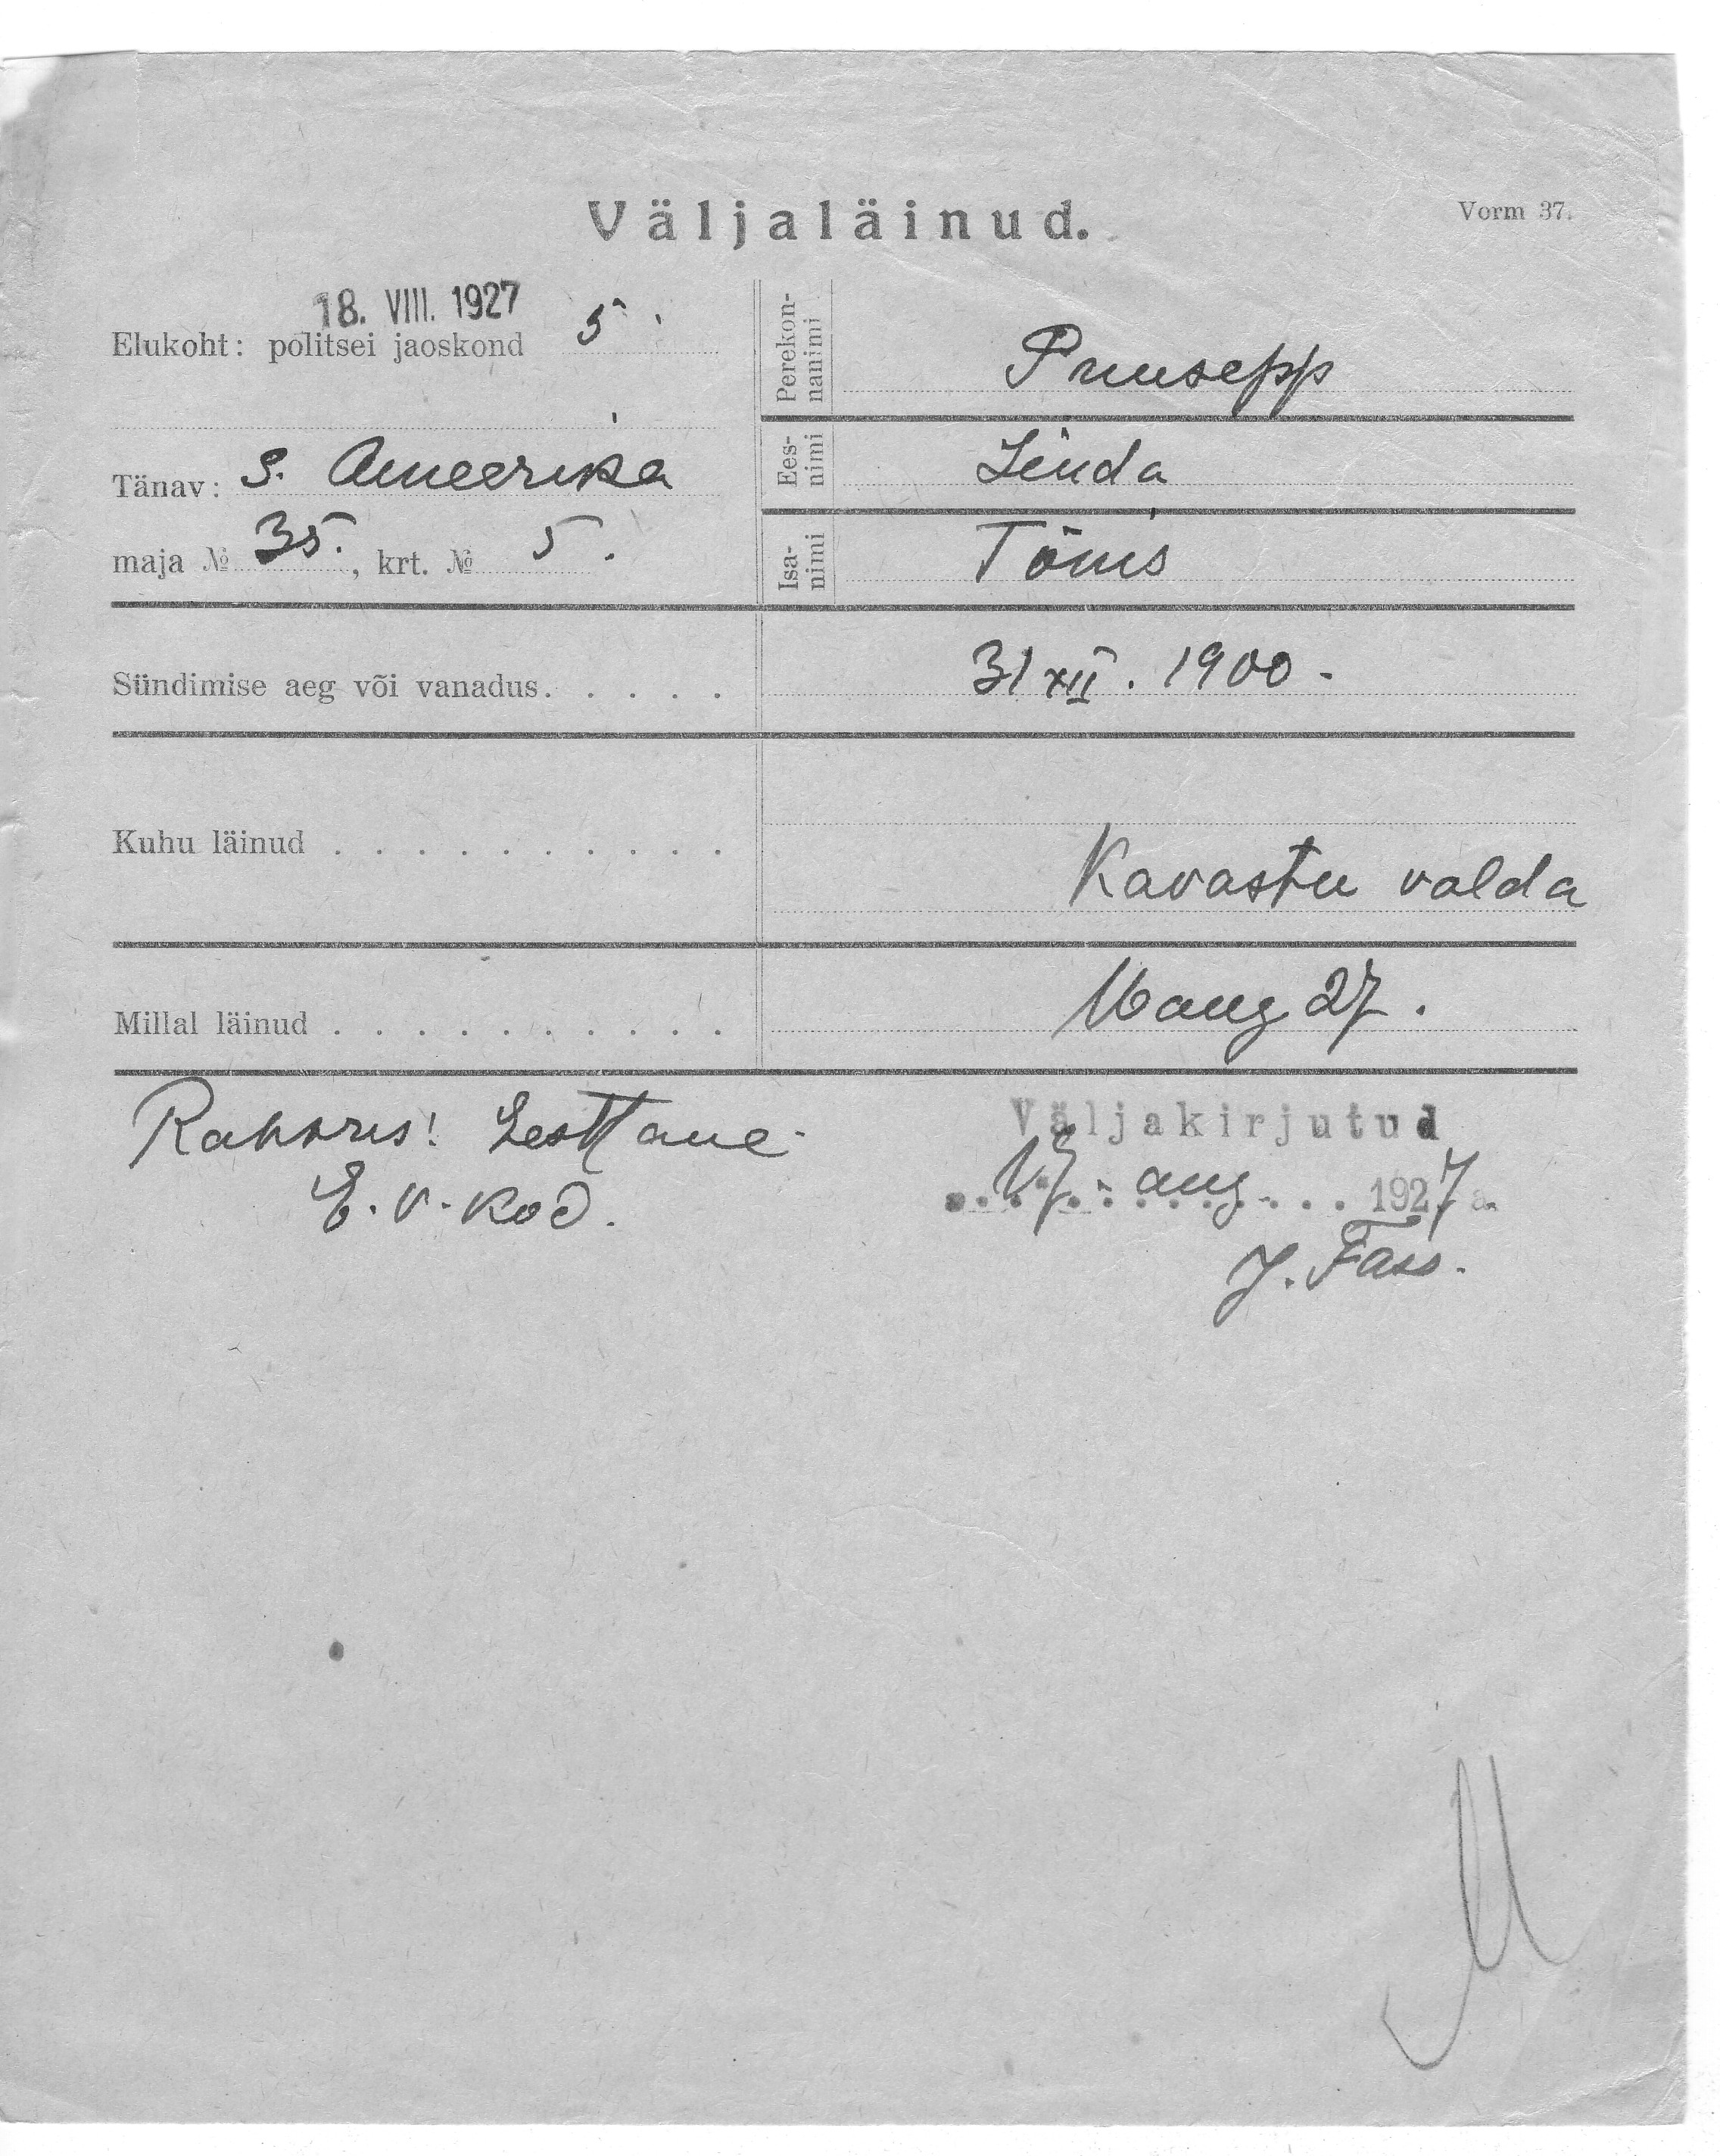 Väljaläinud.
Vorm 37.
18. VIII. 1927
Elukoht: politsei jaoskond 5.
Tänav: S. Ameerika
maja № 35., krt. № 5.
Perekon-
nanimi
Puusepp
Ees-
nimi
Linda
Isa-
nimi
Tõnis
Sündimise aeg või vanadus. . . . . 31 XII. 1900.-
Kuhu läinud . . . . . . . . . . Kavastu valda
Millal läinud . . . . . . . . . . 16 aug 27.
Rahvus! Eestlane
E. V. kod.
Väljakirjutud
17. aug. 1927 a.
J. Tass.